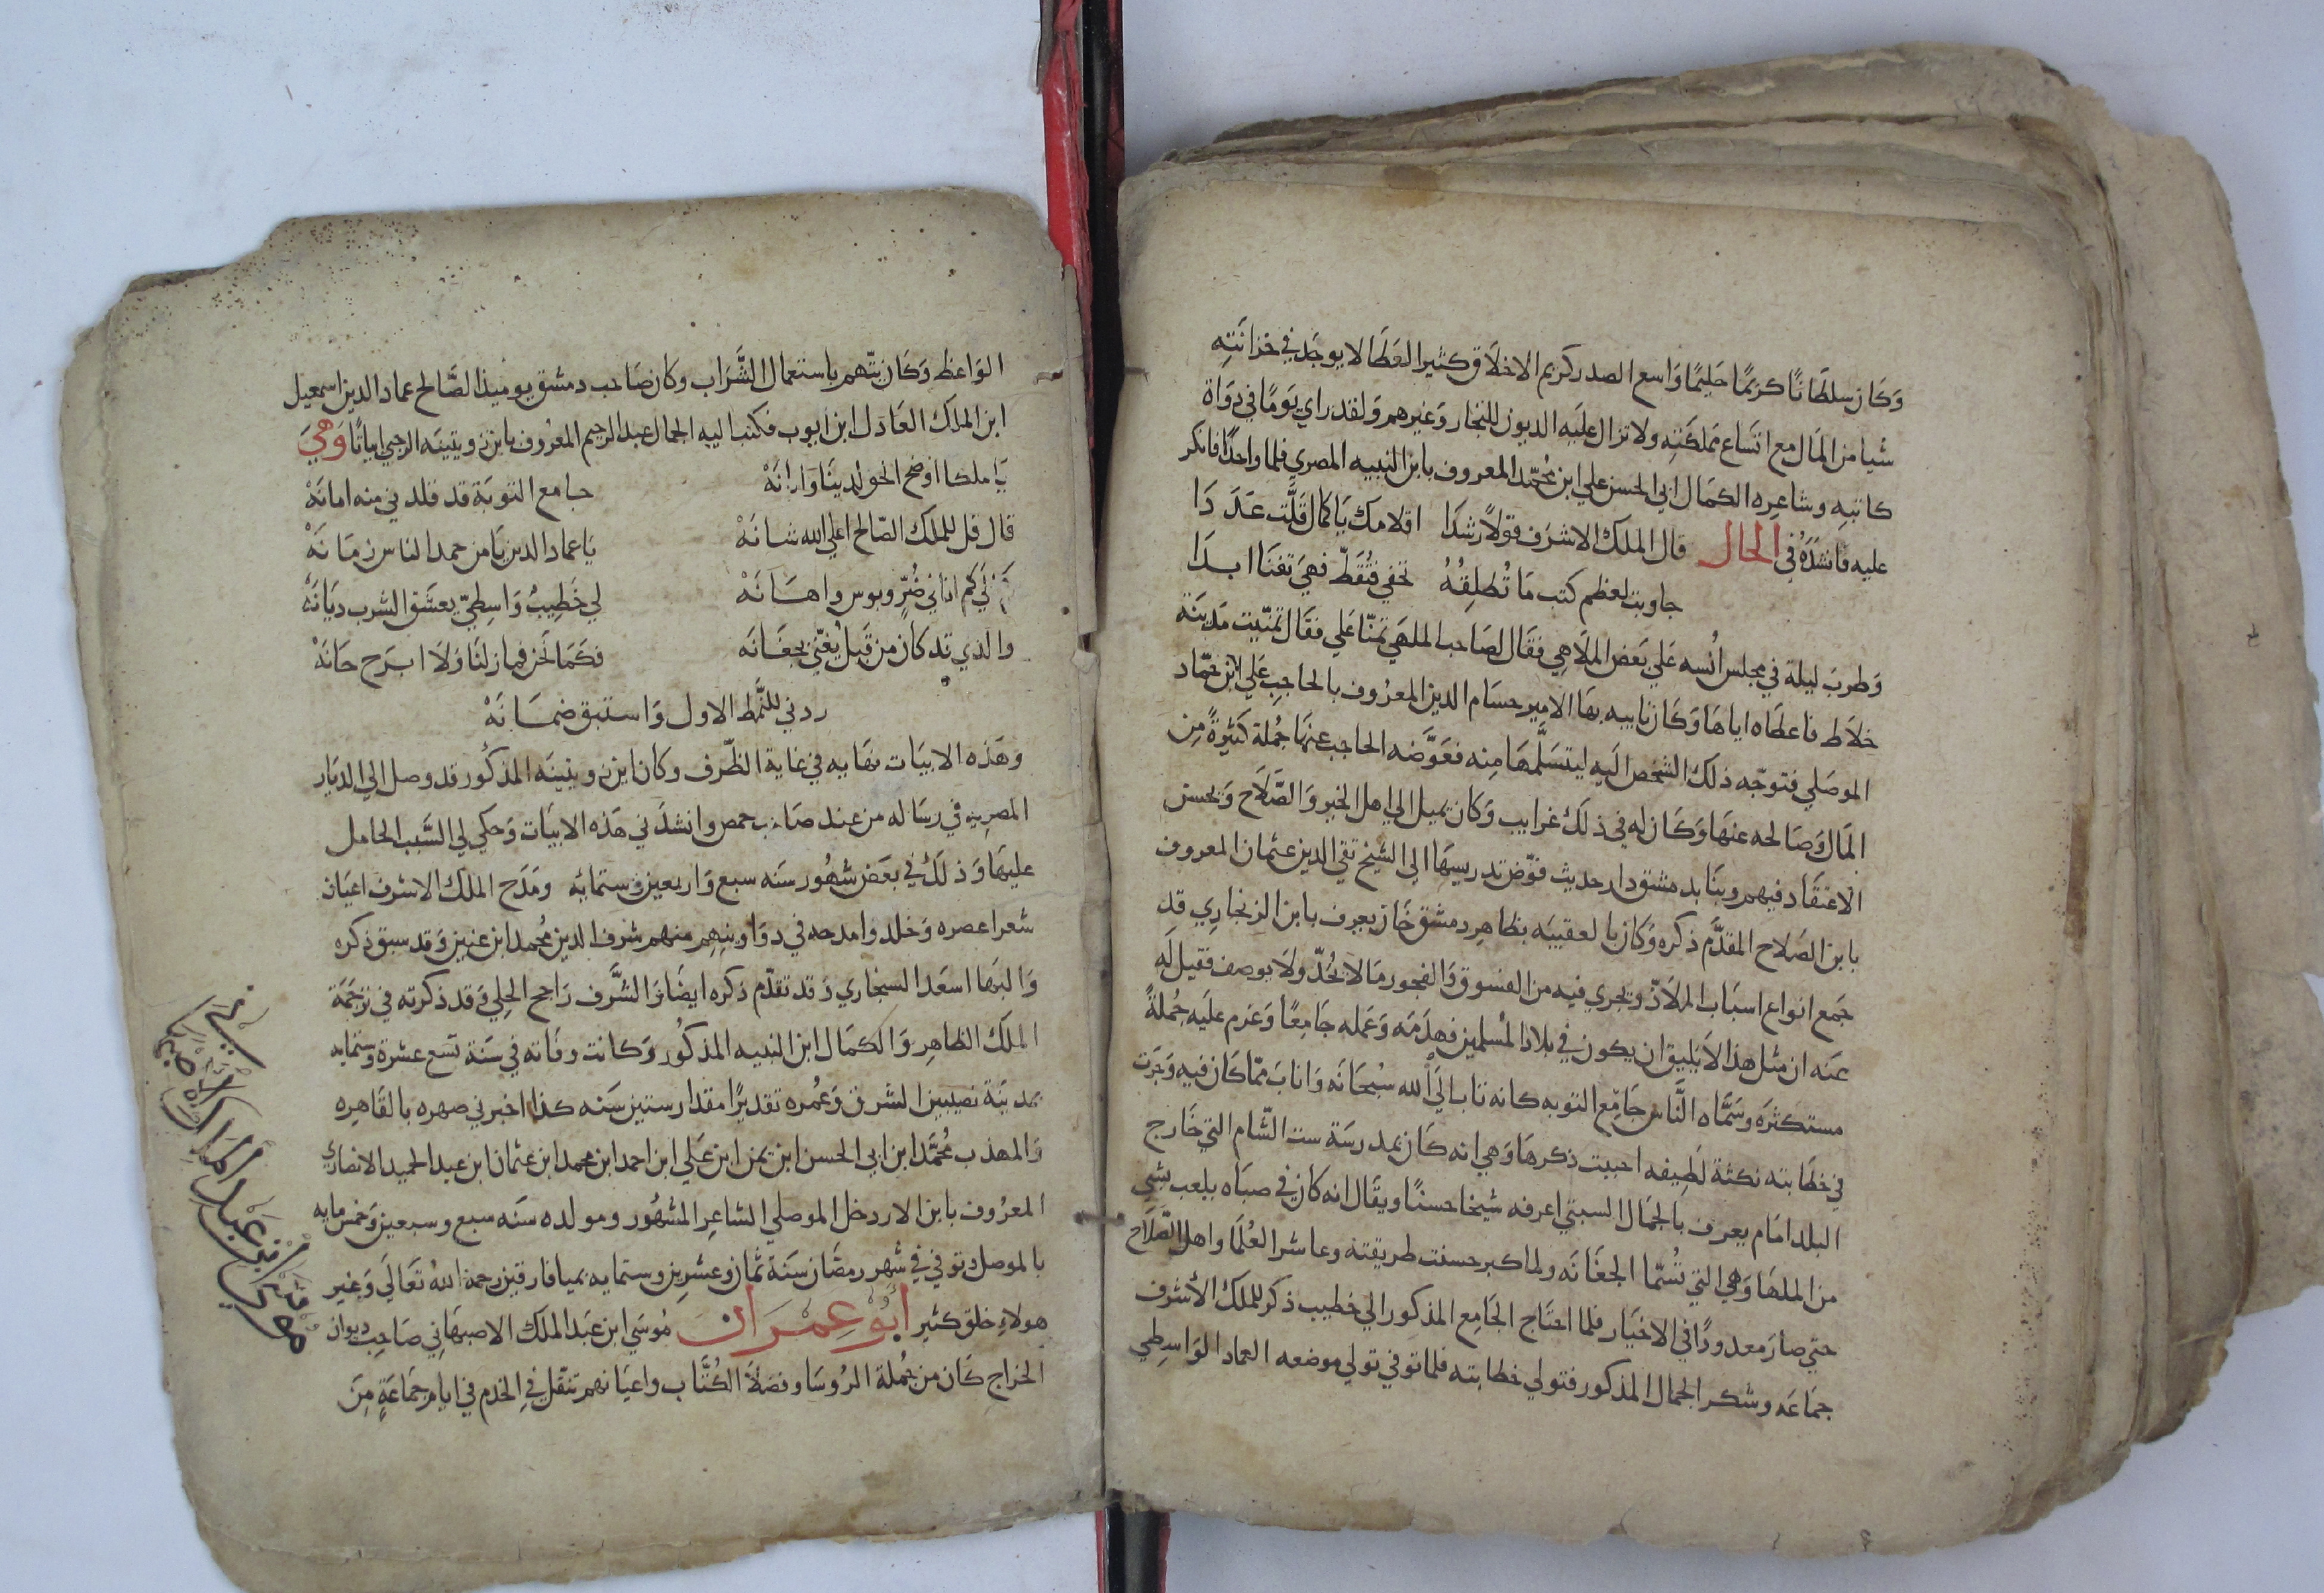 وَكَان سلطَانًا كريمًا حَليمًا وَاسع الصدر كريم الاخلَاق كثير العَطَا لا يوجَد في خزانَتِهِ
شيا من المَال مع اتسَاع مَملكَتهِ ولا تزال علَيه الديون للتجار وَغيرهم وَلقد راي يَومًا في دوَاة
كاتبهِ وشاعِره الكمَال ابي الحسن علي ابن محُمّد المعروف بابن النبيه المصري قلما واحدًا فانكر
عليه فانشدَهُ في الحال قال الملك الاشرَف قولًا رشدَا اقلامك يَا كمال قَلَّت عَدَدَا
جاوبت لعظم كتب مَا تُطلِقهُ تحفي فَتُقَطّ فهيَ تفنَا ابدَا
وَطربَ ليلة في مجلس اُنسه عَلي بَعض الملَاهي فقَال لصَاحب الملهَي تمنّا عَلي فقَال تمنّيت مَدينَة
خلَاط فاعطَاه اياهَا وَكَان نايبه بهَا الامير حسَام الدين المعرُوف بالحاجبِ عَلي ابن حمّاد
الموصَلي فتوجّه ذلكَ الشخص اليه ليتسَلَّمهَا مِنه فعَوَّضَه الحاجب عنهَا جُملة كَثيرةً مِن
المَال وَصَالحه عنهَا وَكَان له في ذلكَ غرايب وَكَان يميل الي اهل الخير وَالصَّلَاح وَيحسن
الاعتقَاد فيهم وبنَا بدمشق دار حديث فوّض تدريسهَا الي الشيخ تقي الدين عثمان المعروف
بابن الصَلاح المقدَّم ذكره وَكَان بالعقيبَه بظاهِر دمشق خَان يعرف بابن الزنجارِي قد
جَمع انواع اسبَاب الملَاذّ ويجري فيه من الفسوق وَالفجور مَا لا يُحَدّ ولَا يوصف فقيل لَه
عنَه ان مثل هذا لا يَليق ان يكون في بلاد المُسلمين فهدَمَه وَعَمله جَامعًا وَغرم علَيه جُملةً
مستكثرَه وسَمَّاه النَّاس جَامِع التوبه كانه تاب الَي الله سُبحَانَه وَاناب ممّا كَان فيه وَجَرَت
في خطَابته نكتة لَطِيفه احببت ذكرهَا وَهي انه كَان بمدرسَة ست الشّام التي خَارج
البلد امَام يعرف بالجمَال السبتي اعرفه شيخا حسنًا ويقَال انه كَان في صبَاه يلعب بشي
من الملهَا وَهي التي تُسمّا الجغَانَه ولما كبر حسنت طريقته وعاشر العُلمَا واهل الصَّلَاح
حتي صارَ معدودًا في الاخيَار فلما احتَاج الجَامِع المذكور الي خطيب ذكر للملك الأشرف
جَمَاعَه وشكر الجمال المذكور فتولي خطابته فلما توفي تولي موضعه العماد الوَاسِطِي
الوَاعظ وَكَان يتّهم باستعمال الشَّرَاب وكان صَاحب دمشق يوميذ الصَّالح عماد الدين اسمعيل
ابن الملك العَادل ابن ايوب فكتب اليه الجمال عبد الرحيم المعرُوف بابن زويتينَه الرحبي ابياتًا وَهيَ
يَا ملكا اوضح الحق لدينَا وَابانَهْ جامع التوبَة قد قلدني منه امانَهْ
قال قل للملك الصّالح اعلي الله شانَهْ يَا عماد الدين يَا من حمد الناس زمَانَهْ
كَم الي كم انا في ضُرّ وبوس واهَانَهْ لي خَطِيبُ وَاسِطيّ يعشَق الشرب ديَانَهْ
والذي قد كان من قَبل يُغنّي بجغَانَه فكمَا نَحن فما زلنَا وَلَا ابرَح حَانَهْ
ردني للنَّمط الاول وَاستبق ضمَانَهْ
وهَذه الابيَات نهَايه في غاية الظّرف وكان ابن زويتينَه المذكُور قد وصل الي الديَار
المصريه في رسَاله من عند صَاحب حمص وانشدَني هَذه الابيَات وَحكي لي السَّبب الحامل
عليهَا وَذلكَ في بعَض شهُور سنَه سبع وَاربعين وستمايَه ومَدَح الملك الاشرف اعيَان
شعرا عصره وَخلدوا مدحه في دوَاوينهم منهم شرف الدين محُمد ابن عنين وَقد سبق ذكره
وَالبهَا اسعَد السنجاري وَقد تقدّم ذكره ايضًا وَالشَّرف رَاجح الحِلي وَقد ذكرته في ترجَمَة
الملَك الظاهِر وَالكمَال ابن النبيه المذكُور وَكَانت وفَاته في سَنَة تسع عشرة وستمايه
بمدينَة نصيبين الشرق وَعُمره تقديرًا مقدار ستين سَنَه كذا اخبرني صهره بالقَاهِره
وَالمهذب مُحمَّد ابن ابي الحسن ابن يمن ابن عَلي ابن احمد ابن محمد ابن عثمان ابن عبد الحميد الانصاري
المعرُوف بابن الاردخل الموصلي الشاعِر المشهُور ومولده سَنَه سبع وسبعين وَخمس مايه
بالموصل وتوفي في شَهر رمضَان سَنَة ثمَان وعشرين وستمايه بميافارقين رحمة اللهُ تعَالَي وَغير
هولاء خلق كثير أبو عمران مُوسَي ابن عَبد الملك الاصبهَاني صَاحب ديوان
الخراج كَان من جُملة الرُوسَا وفضلَا الكُتَّاب واعيَانهم تنقّل في الخدم في ايام جمَاعَةٍ مِنَ